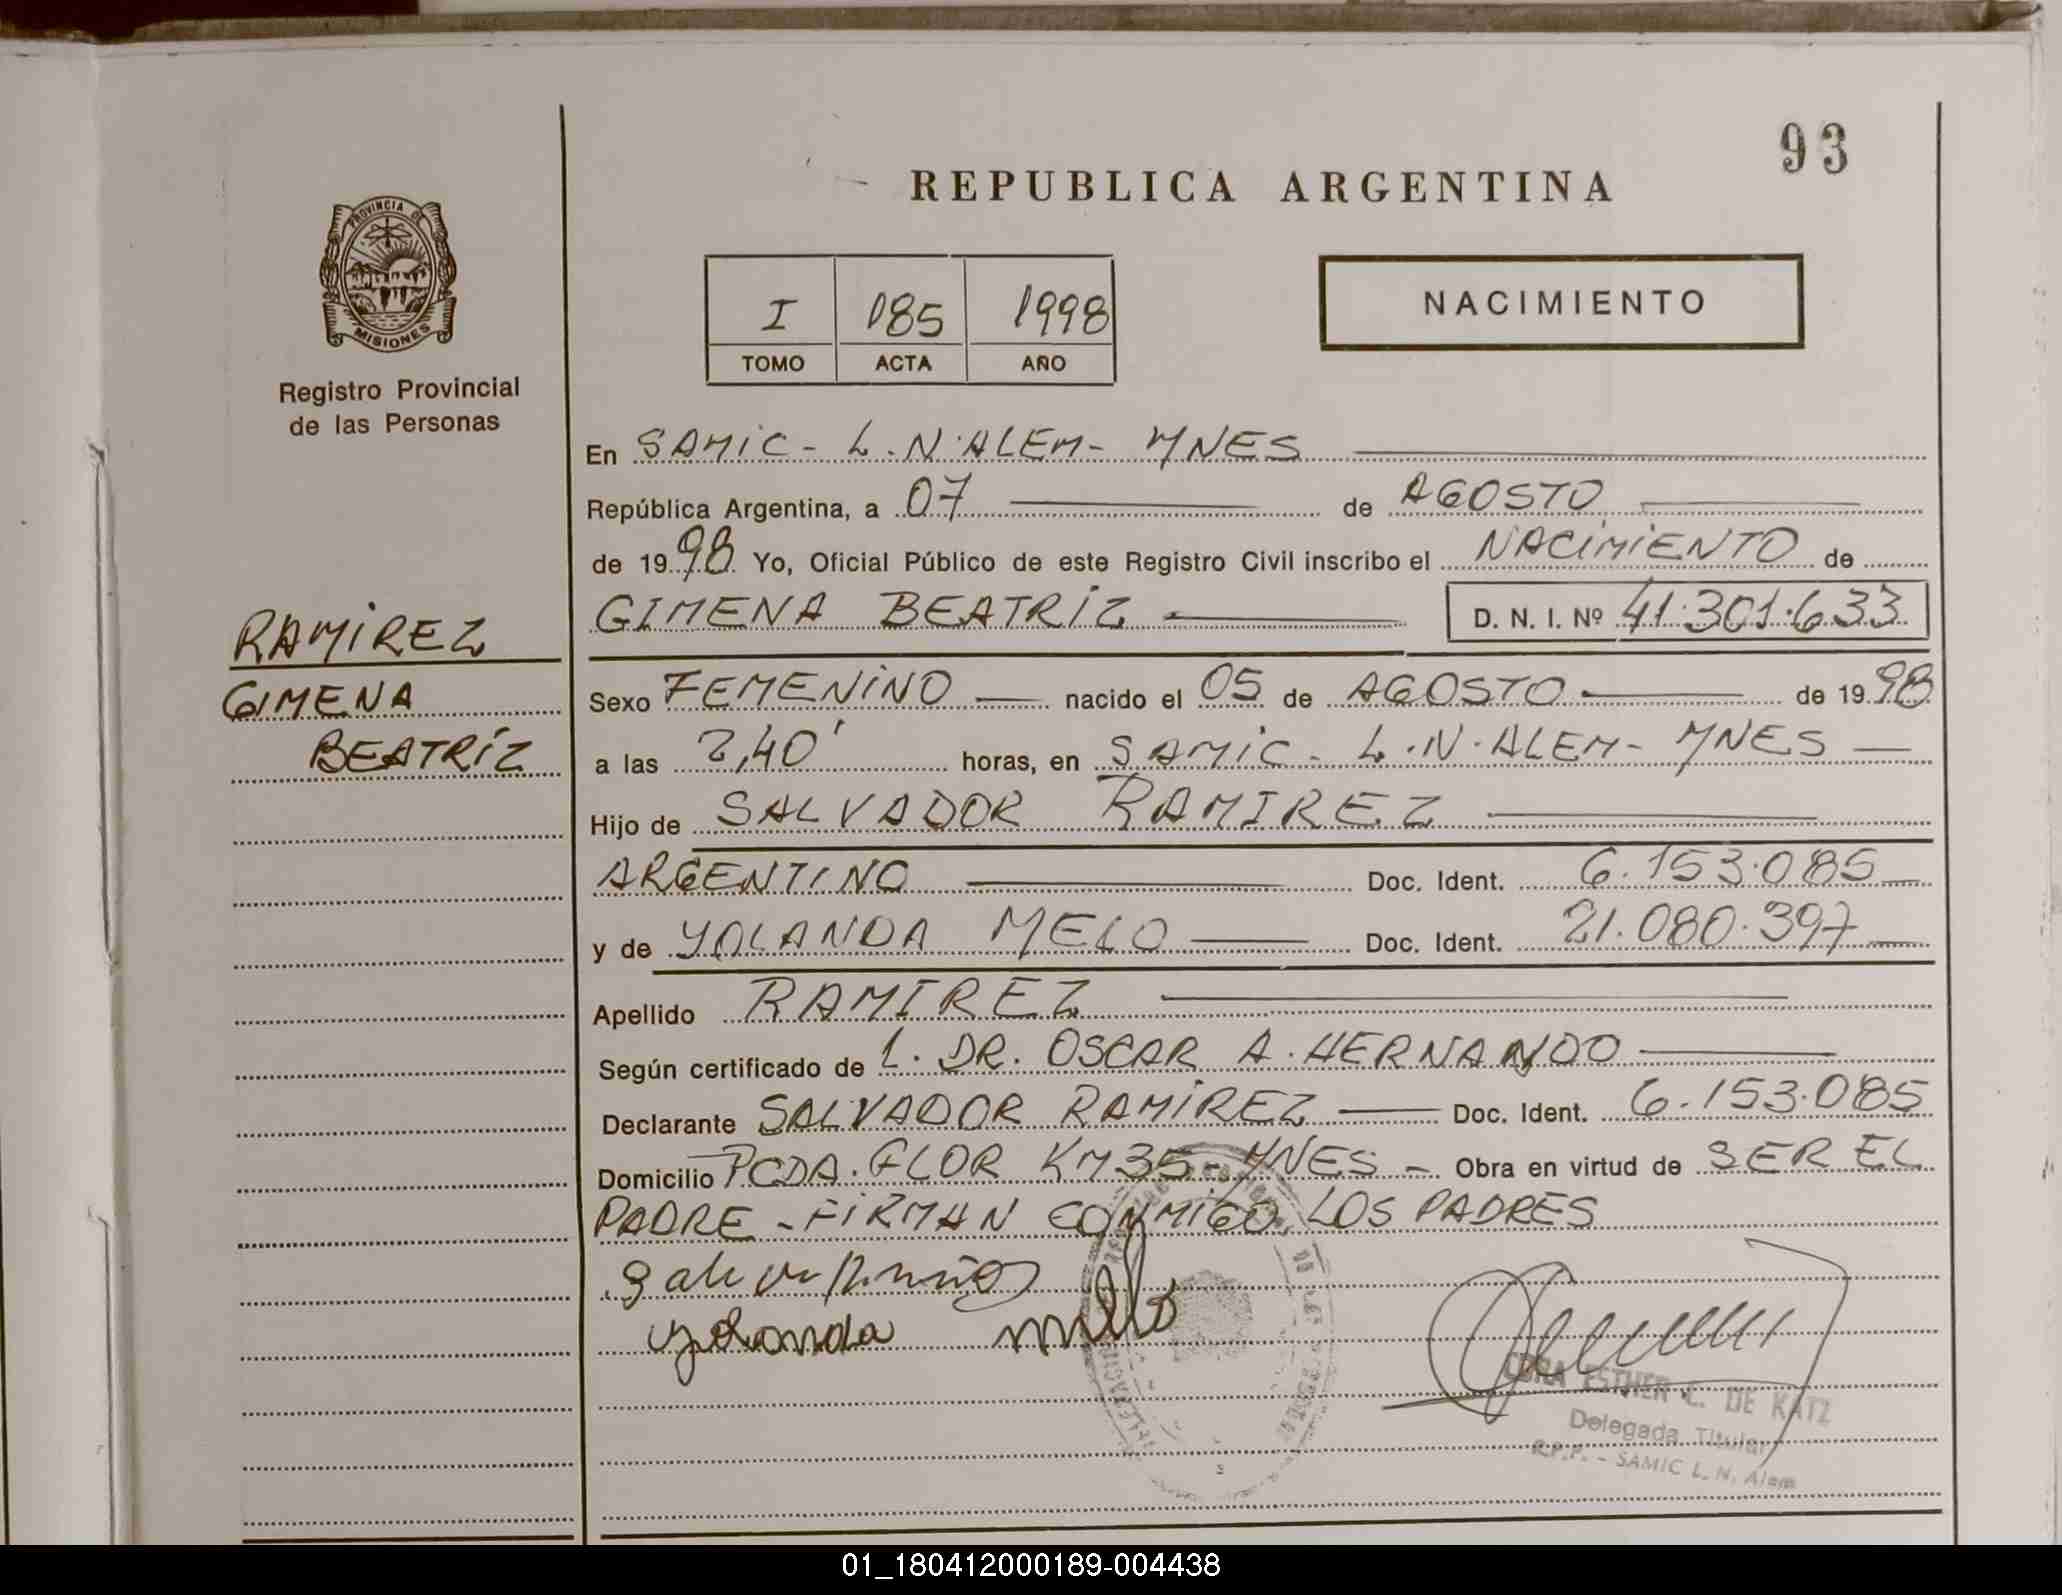 93
REPUBLICA ARGENTINA
PROVINCIA DE
MISIONES
Registro Provincial
de las Personas
I 185 1998
TOMO ACTA AÑO
NACIMIENTO
En SAMIC - L.N. ALEM - MNES
República Argentina, a 07 de AGOSTO
de 1998 Yo, Oficial Público de este Registro Civil inscribo el NACIMIENTO de
GIMENA BEATRIZ D. N. I. Nº 41.301.633
RAMIREZ
GIMENA
BEATRIZ
Sexo FEMENINO nacido el 05 de AGOSTO de 1998
a las 2,40' horas, en SAMIC - L.N. ALEM - MNES
Hijo de SALVADOR RAMIREZ
ARGENTINO Doc. Ident. 6.153.085
y de YOLANDA MELO Doc. Ident. 21.080.397
Apellido RAMIREZ
Según certificado de L. DR. OSCAR A. HERNANDO
Declarante SALVADOR RAMIREZ Doc. Ident. 6.153.085
Domicilio PCDA. FLOR KM 35 - MNES - Obra en virtud de SER EL
PADRE - FIRMAN CONMIGO LOS PADRES
yolanda mello
ESTHER C. DE KATZ
Delegada Titular
R.P.P. - SAMIC L. N. Alem
01_180412000189-004438